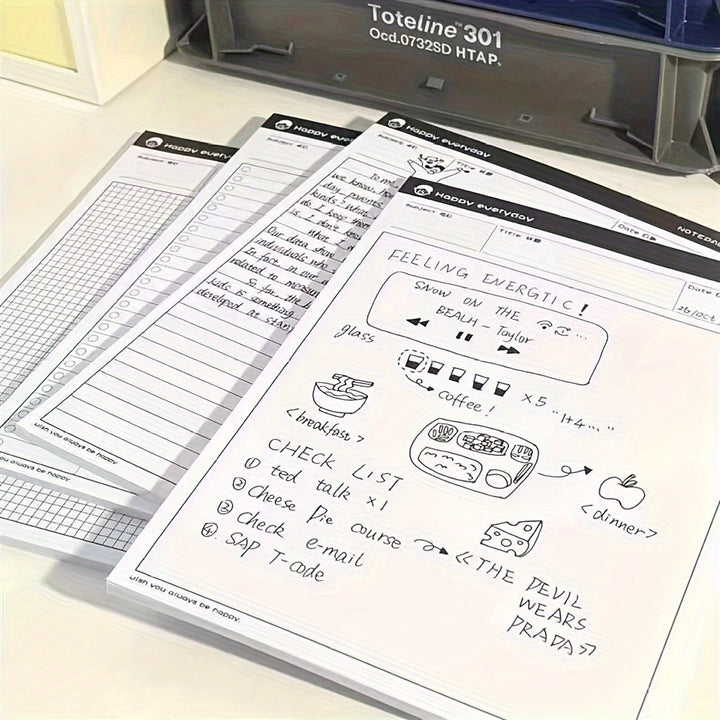 Toteline™ 301
Ocd.0732SD HTAP.
Happy everyday
Happy everyday
Happy everyday
NOTEPAD
Happy everyday
Subject
Title
Date
26/Oct
FEELING ENERGTIC!
SNOW ON THE
BEALH - Taylor
glass
×5 "1+4...."
coffee!
<breakfast>
<dinner>
CHECK LIST
① ted talk ×1
② Cheese Pie course
③ Check e-mail
④. SAP T-code
<<THE DEVIL
WEARS
PRADA>>
wish you always be happy.
wish you always be happy.
we know, 
day parents
kinds? What
do I keep them
is. I don't know
What I
Our data show
individuals who
In fact in our
related to
So far the
kids is something
developed at